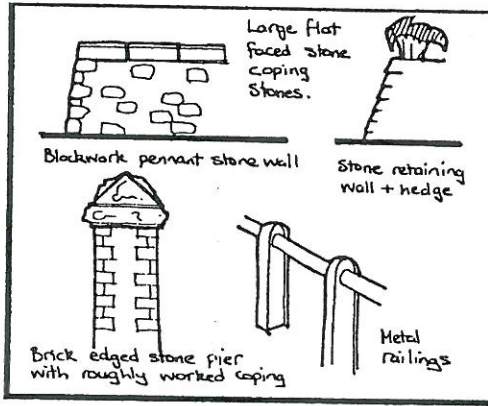 Large flat
faced stone
coping
stones.
Blockwork pennant stone wall
Stone retaining
wall + hedge
Brick edged stone pier
with roughly worked coping
Metal
railings